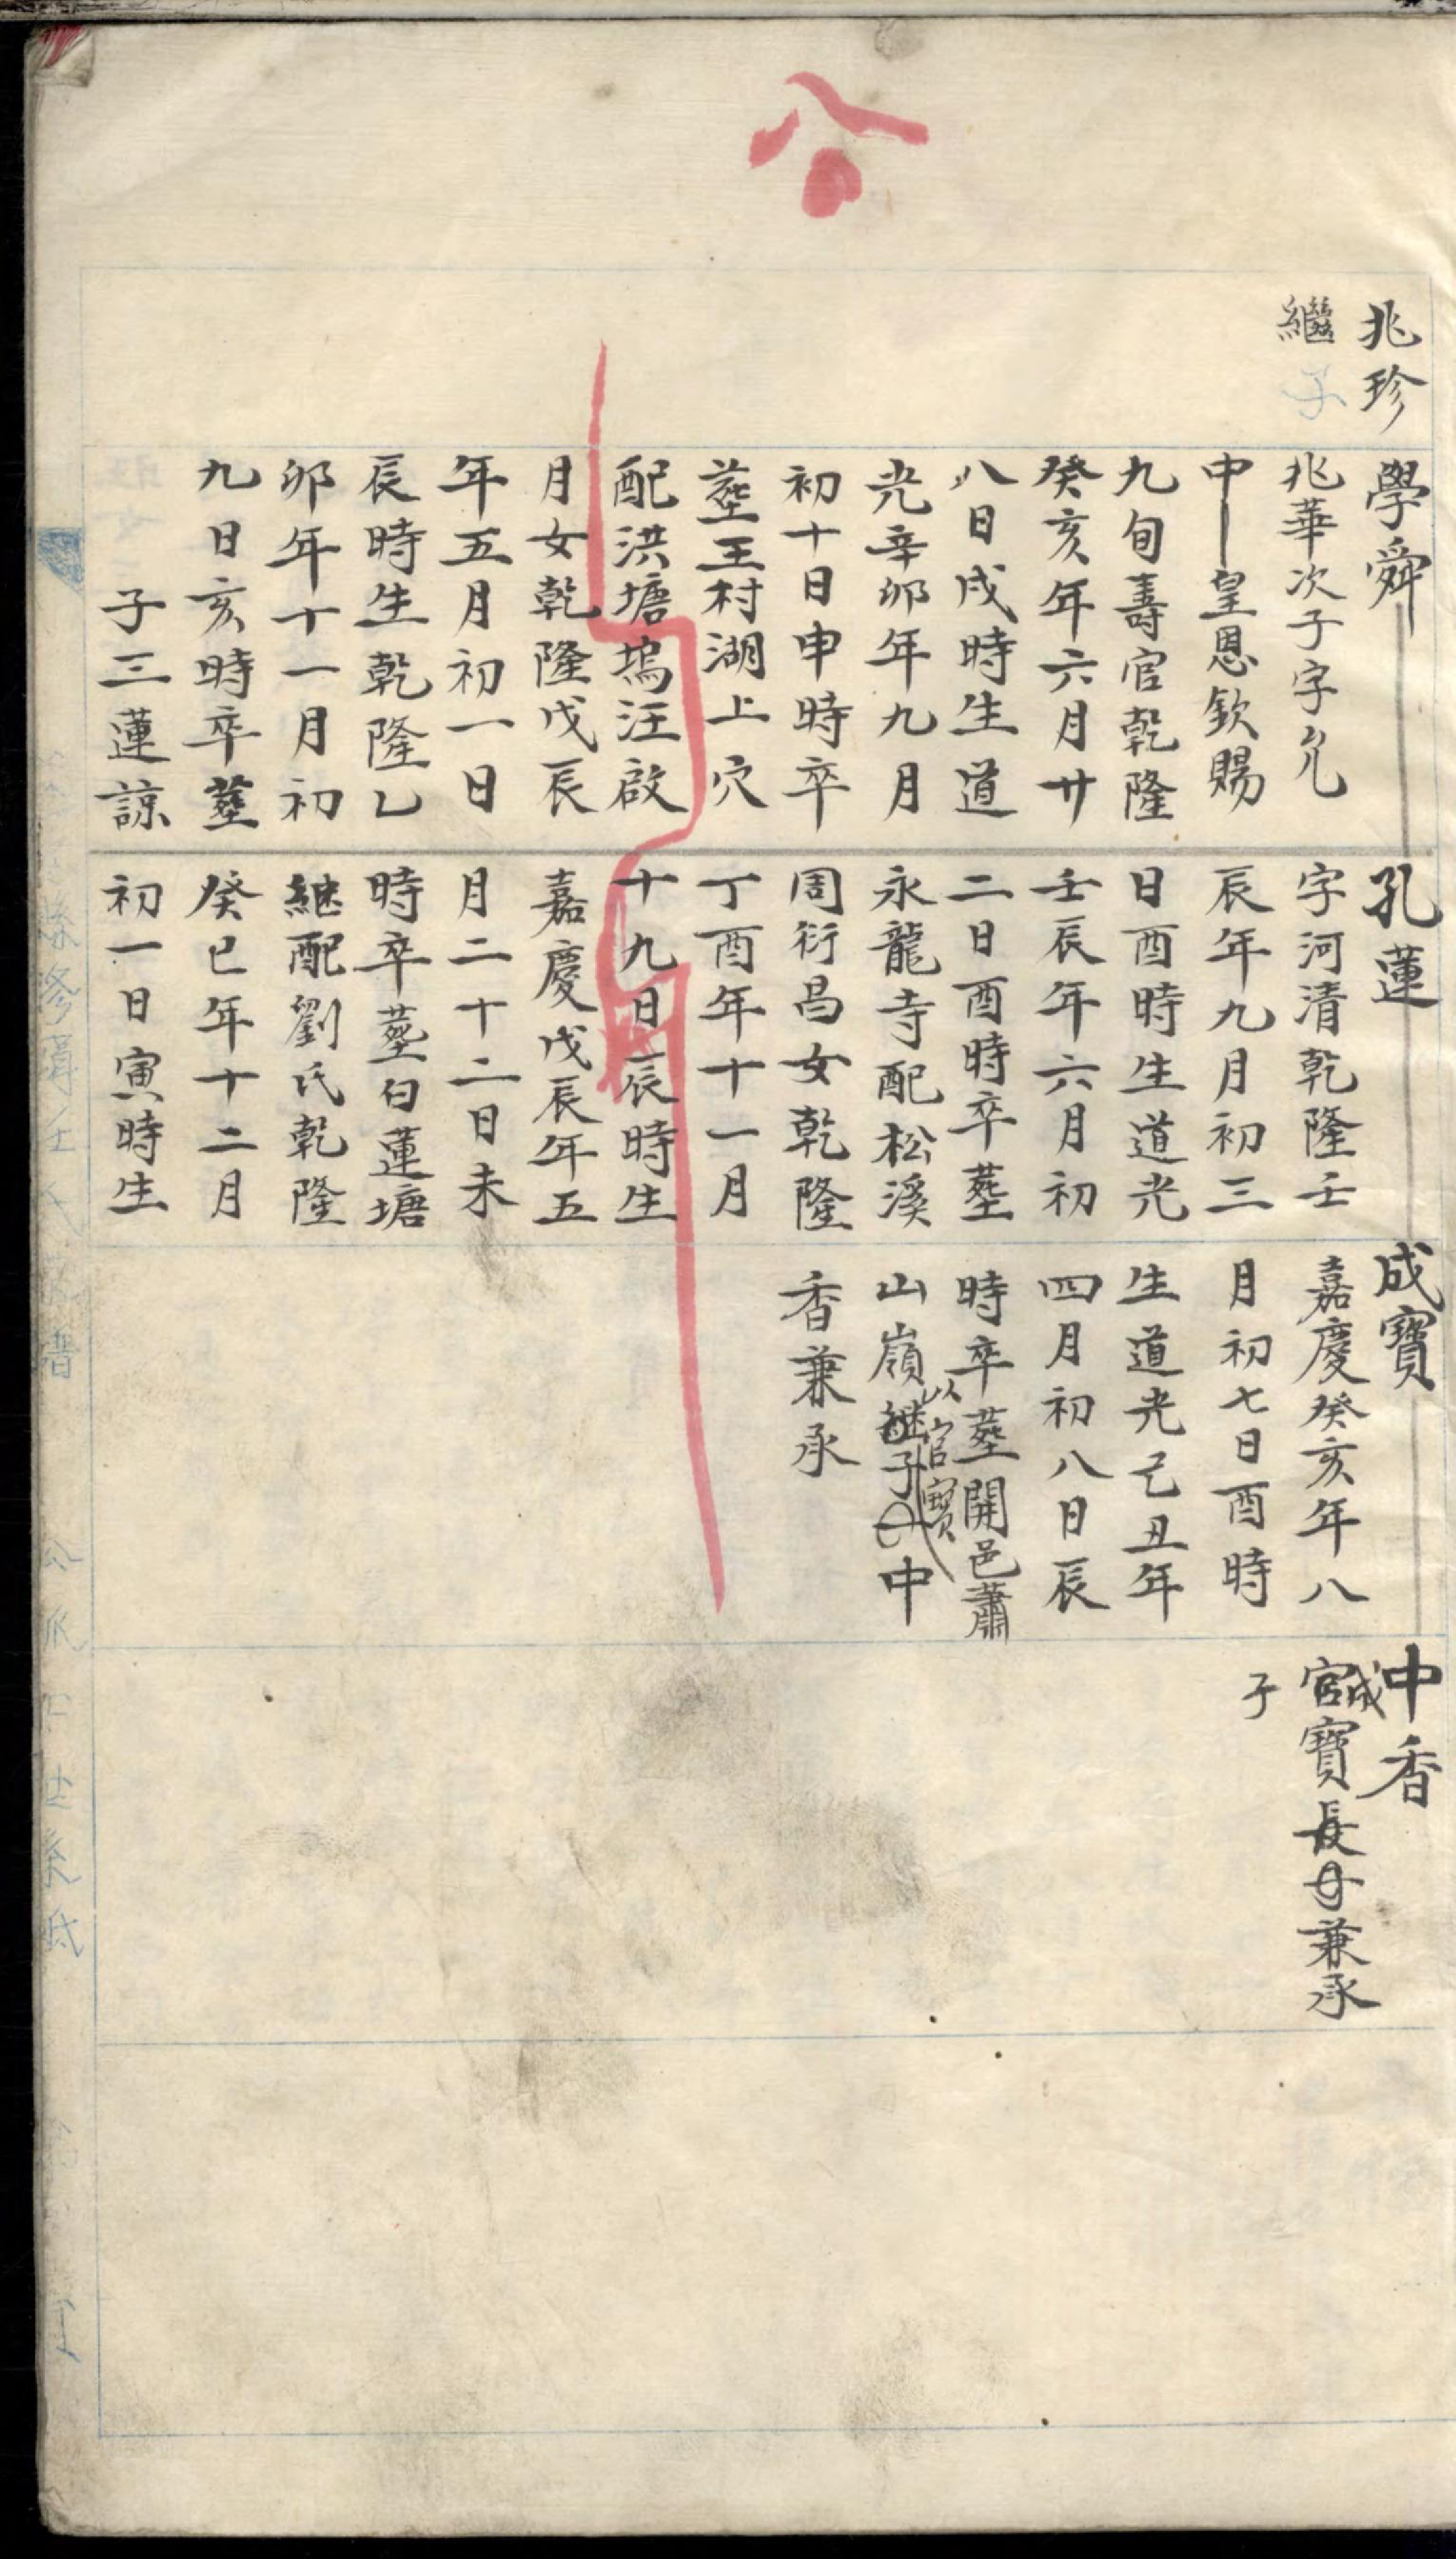 公
兆珍
繼子
學舜
兆華次子字允
中皇恩欽賜
九旬壽官乾隆
癸亥年六月廿
八日戌時生道
光辛卯年九月
初十日申時卒
塟王村湖上穴
配洪塘塢汪啟
月女乾隆戊辰
年五月初一日
辰時生乾隆乙
卯年十一月初
九日亥時卒塟
子三蓮諒
孔蓮
字河清乾隆壬
辰年九月初三
日酉時生道光
壬辰年六月初
二日酉時卒塟
永龍寺配松溪
周衍昌女乾隆
丁酉年十一月
十九日辰時生
嘉慶戊辰年五
月二十二日未
時卒塟白蓮塘
継配劉氏乾隆
癸巳年十二月
初一日寅時生
成寶
嘉慶癸亥年八
月初七日酉時
生道光己丑年
四月初八日辰
時卒塟開邑蕭
以官寶
山嶺継子中
香兼承
中香
成
官寶長子兼承
子